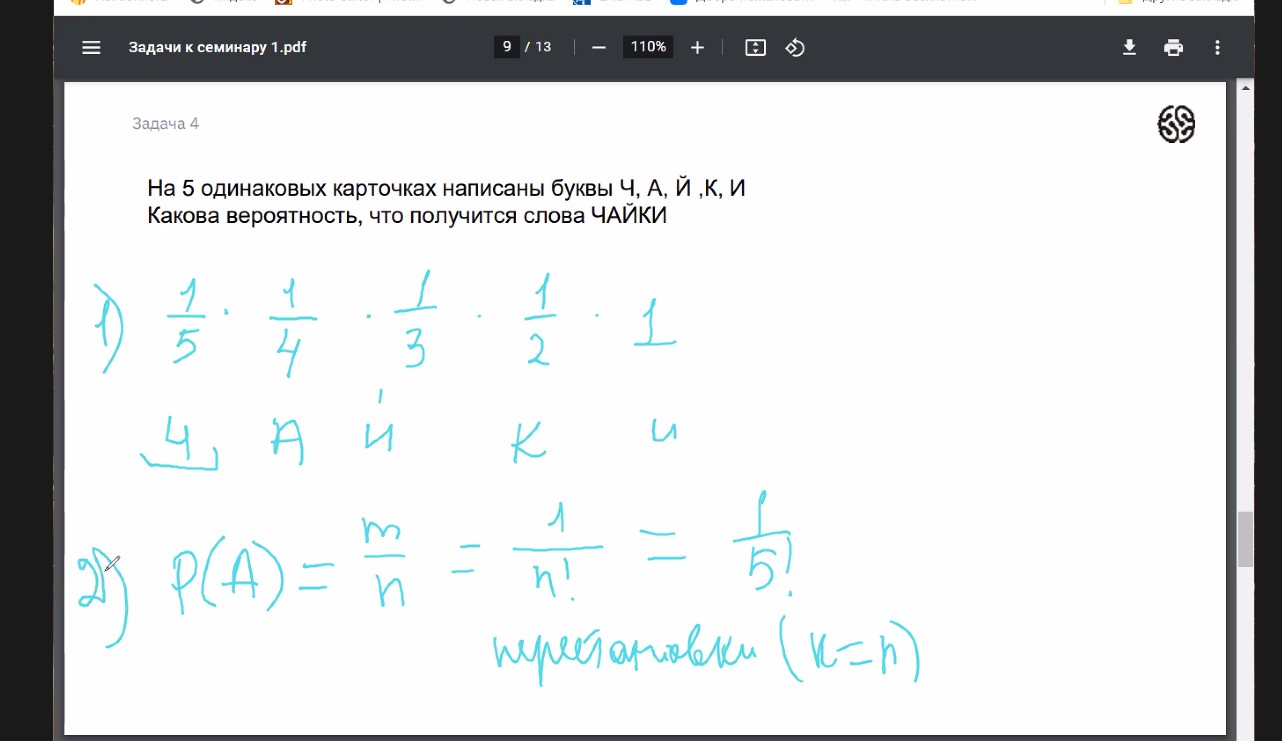 Задачи к семинару 1.pdf
9 / 13
110%
Задача 4
На 5 одинаковых карточках написаны буквы Ч, А, Й ,К, И
Какова вероятность, что получится слова ЧАЙКИ
1) 1/5 · 1/4 · 1/3 · 1/2 · 1
Ч А Й К И
2) P(A) = m/n = 1/n! = 1/5!
перестановки (k=n)